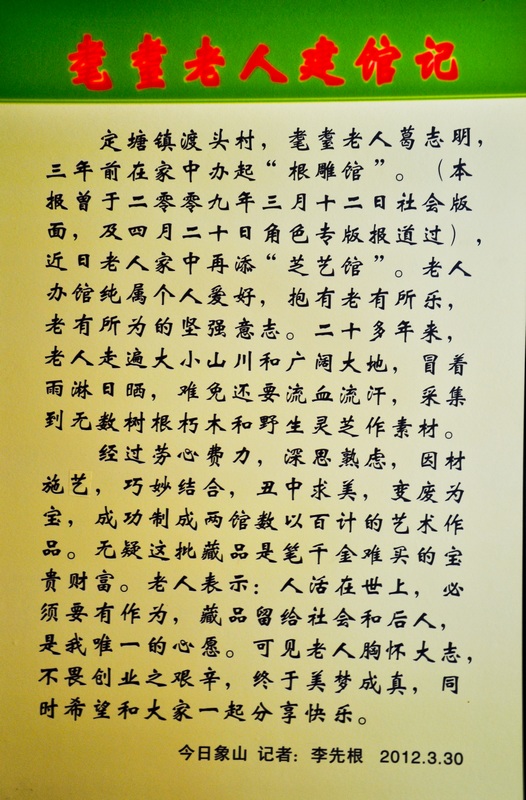 耄耋老人建馆记
定塘镇渡头村，耄耋老人葛志明，
三年前在家中办起“根雕馆”。（本
报曾于二零零九年三月十二日社会版
面，及四月二十日角色专版报道过），
近日老人家中再添“芝艺馆”。老人
办馆纯属个人爱好，抱有老有所乐，
老有所为的坚强意志。二十多年来，
老人走遍大小山川和广阔大地，冒着
雨淋日晒，难免还要流血流汗，采集
到无数树根朽木和野生灵芝作素材。
经过劳心费力，深思熟虑，因材
施艺，巧妙结合，丑中求美，变废为
宝，成功制成两馆数以百计的艺术作
品。无疑这批藏品是笔千金难买的宝
贵财富。老人表示：人活在世上，必
须要有作为，藏品留给社会和后人，
是我唯一的心愿。可见老人胸怀大志，
不畏创业之艰辛，终于美梦成真，同
时希望和大家一起分享快乐。
今日象山 记者：李先根 2012.3.30